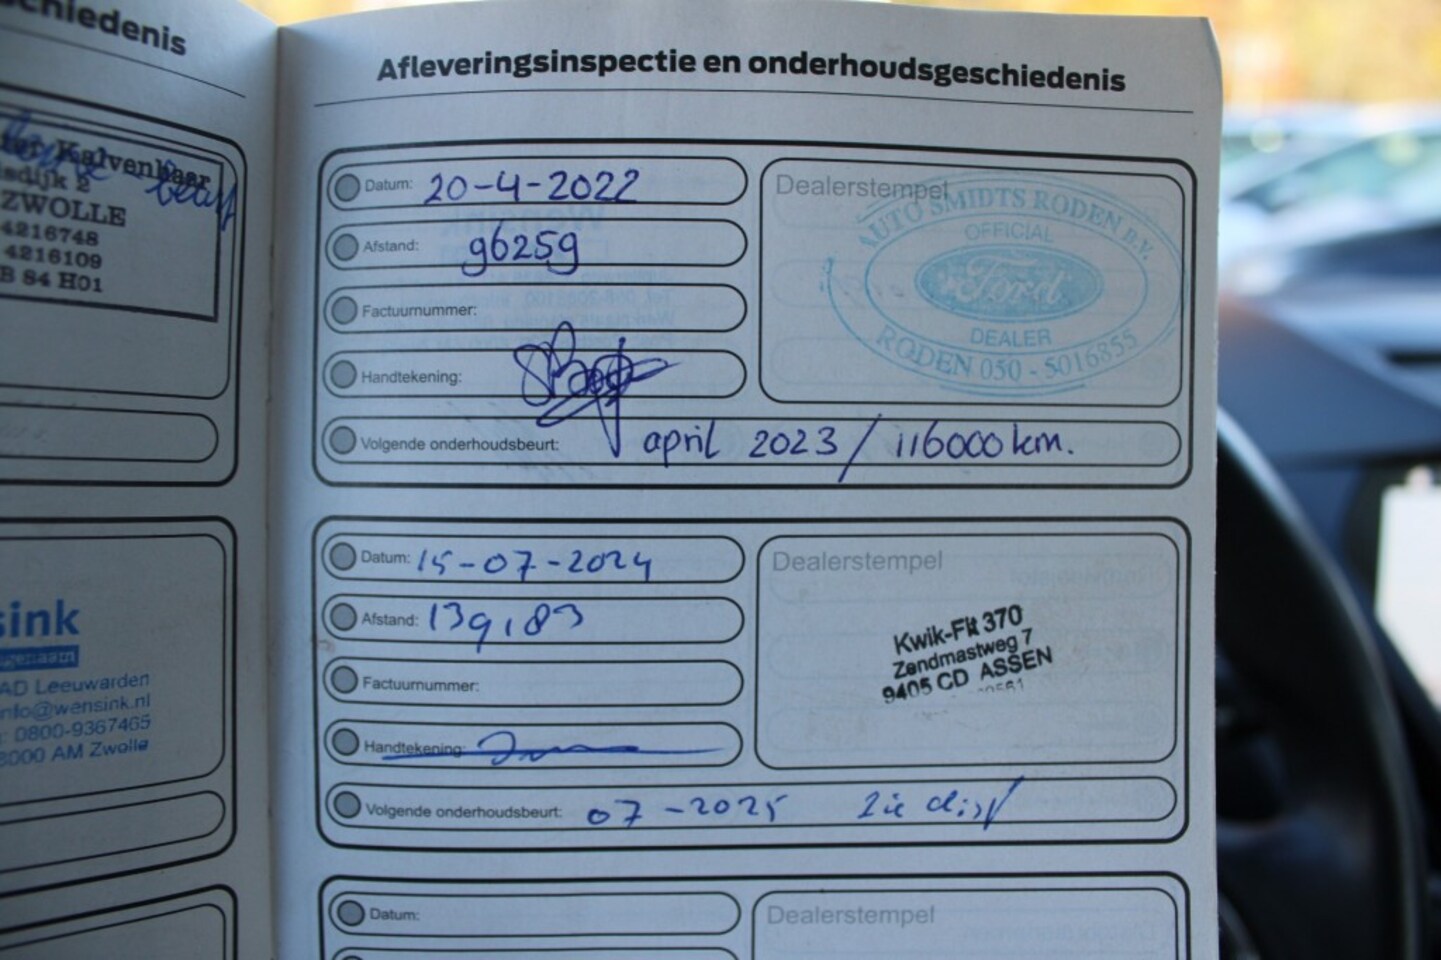 schiedenis
Kalvenhaar
sdijk 2
ZWOLLE
4216748
4216109
B 84 H01
sink
AD Leeuwarden
nfo@wensink.nl
: 0800-9367465
8000 AM Zwolle
Afleveringsinspectie en onderhoudsgeschiedenis
Datum: 20-4-2022
Afstand: 96259
Factuurnummer:
Handtekening:
Volgende onderhoudsbeurt: april 2023 / 116000 km.
Dealerstempel
AUTO SMIDTS RODEN B.V.
OFFICIAL
Ford
DEALER
RODEN 050 - 5016855
Datum: 15-07-2024
Afstand: 139,83
Factuurnummer:
Handtekening:
Volgende onderhoudsbeurt: 07-2025 Zie
Dealerstempel
Kwik-Fit 370
Zendmastweg 7
9405 CD ASSEN
Datum:
Dealerstempel